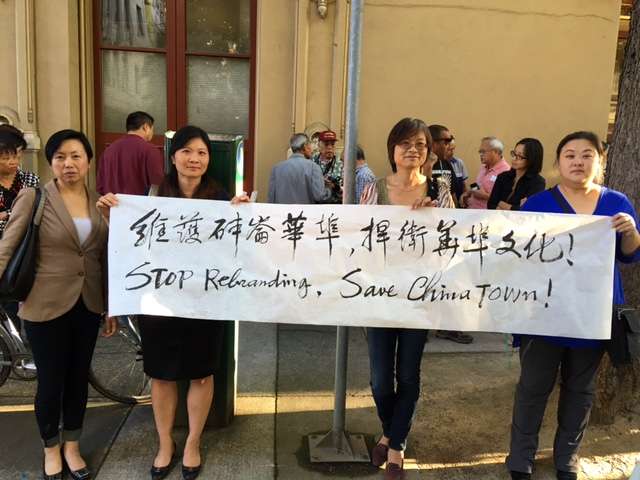 維護砵崙華埠，捍衛華埠文化！
STOP Rebranding, Save China TOWN!